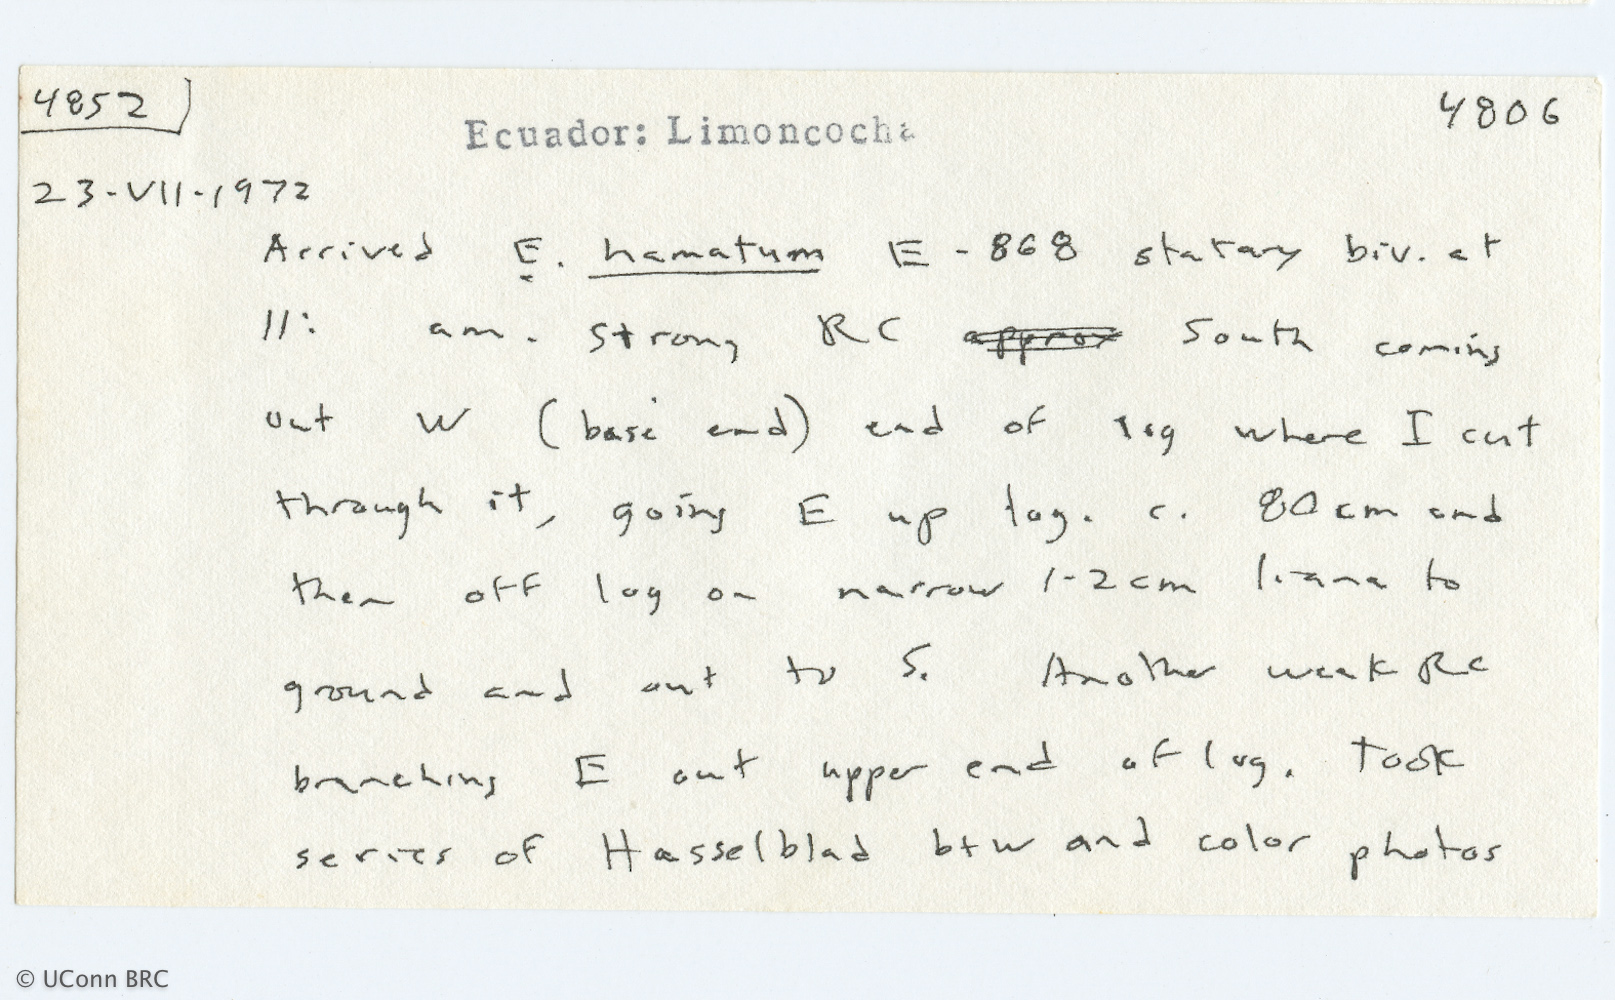 4852
4806
Ecuador: Limoncocha
23-VII-1972
Arrived E. hamatum E-868 statary biv. at
11: am. Strong RC approx South coming
out W (base end) end of log where I cut
through it, going E up log. c. 80 cm and
then off log on narrow 1-2 cm liana to
ground and out to S. Another weak RC
branching E out upper end of log. Took
series of Hasselblad b+w and color photos
© UConn BRC